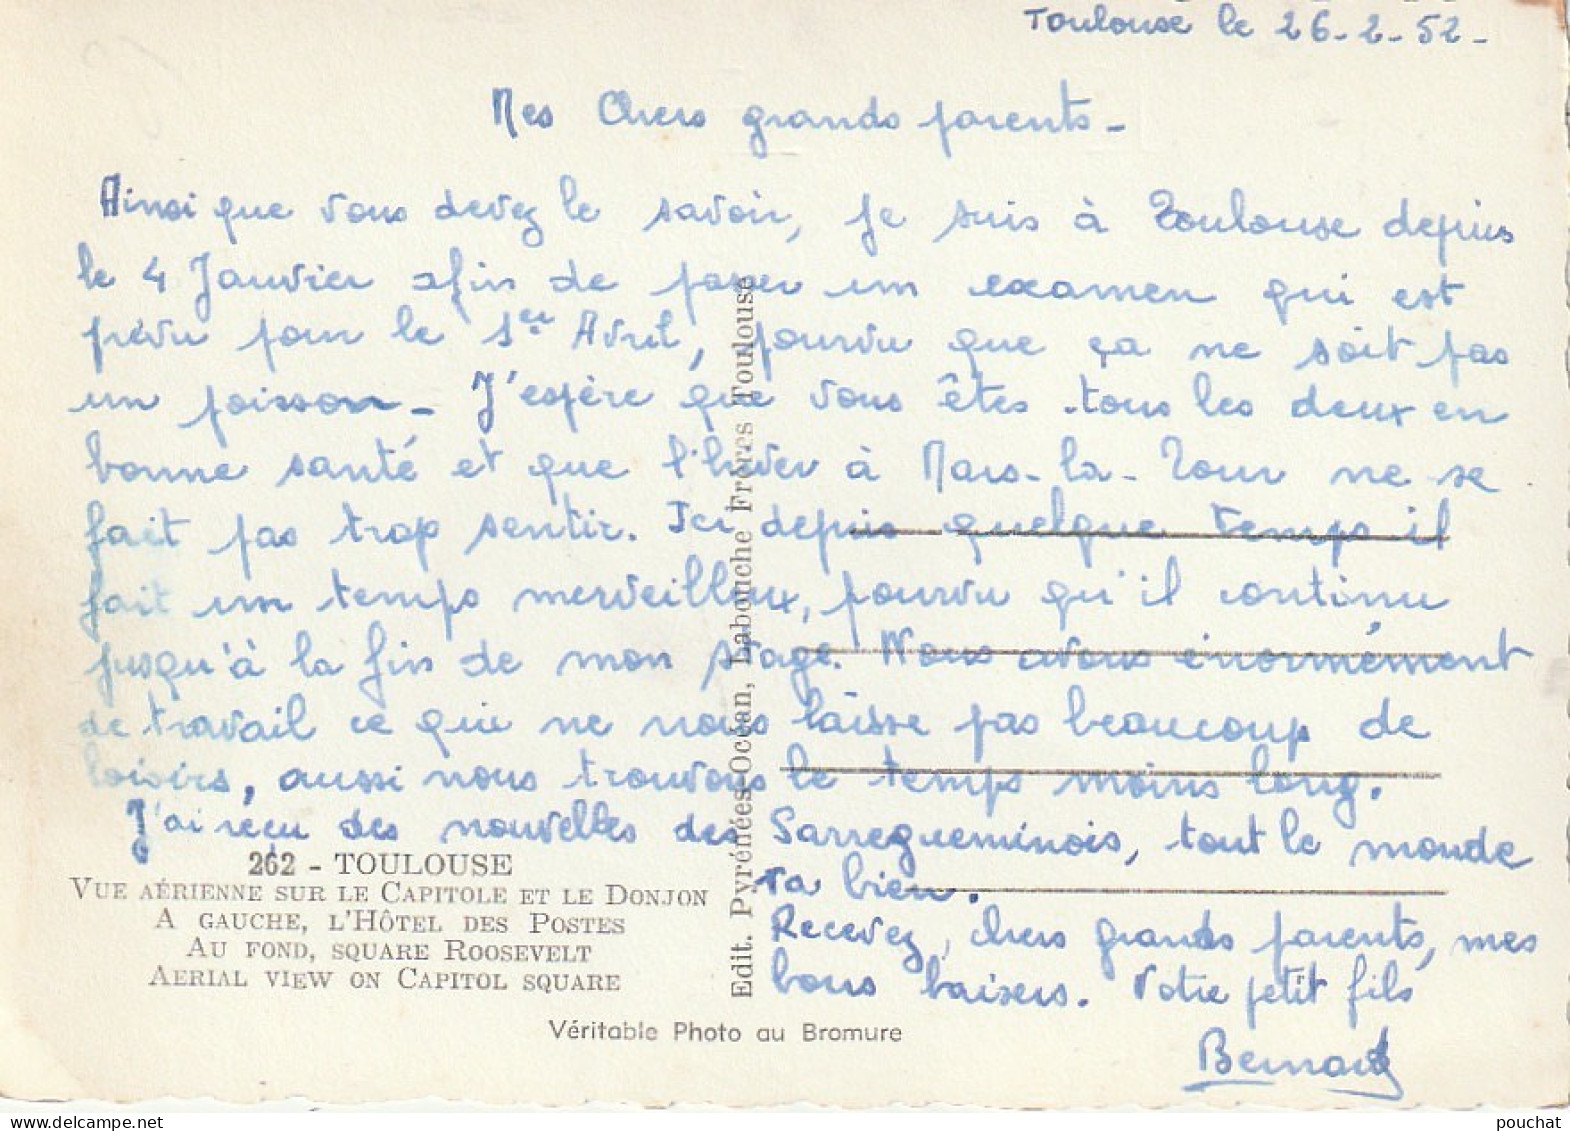 Toulouse le 26-2-52-
Mes Chers grands parents-
Ainsi que vous devez le savoir, je suis à Toulouse depuis
le 4 Janvier afin de passer un examen qui est
prévu pour le 1er Avril, pourvu que ça ne soit pas
un poisson- J'espère que vous êtes tous les deux en
bonne santé et que l'hiver à Mars-la-Tour ne se
fait pas trop sentir. Ici depuis quelque temps il
fait un temps merveilleux, pourvu qu'il continu
jusqu'à la fin de mon stage. Nous avons énormément
de travail ce qui ne nous laisse pas beaucoup de
loisirs, aussi nous trouvons le temps moins long.
J'ai reçu des nouvelles des Sarregueminois, tout le monde
va bien.
Recevez, chers grands parents, mes
bons baisers. Votre petit fils
Bernard
262 - TOULOUSE
VUE AÉRIENNE SUR LE CAPITOLE ET LE DONJON
A GAUCHE, L'HÔTEL DES POSTES
AU FOND, SQUARE ROOSEVELT
AERIAL VIEW ON CAPITOL SQUARE
Edit. Pyrénées-Océan, Labouche Frères Toulouse
Véritable Photo au Bromure
pouchat